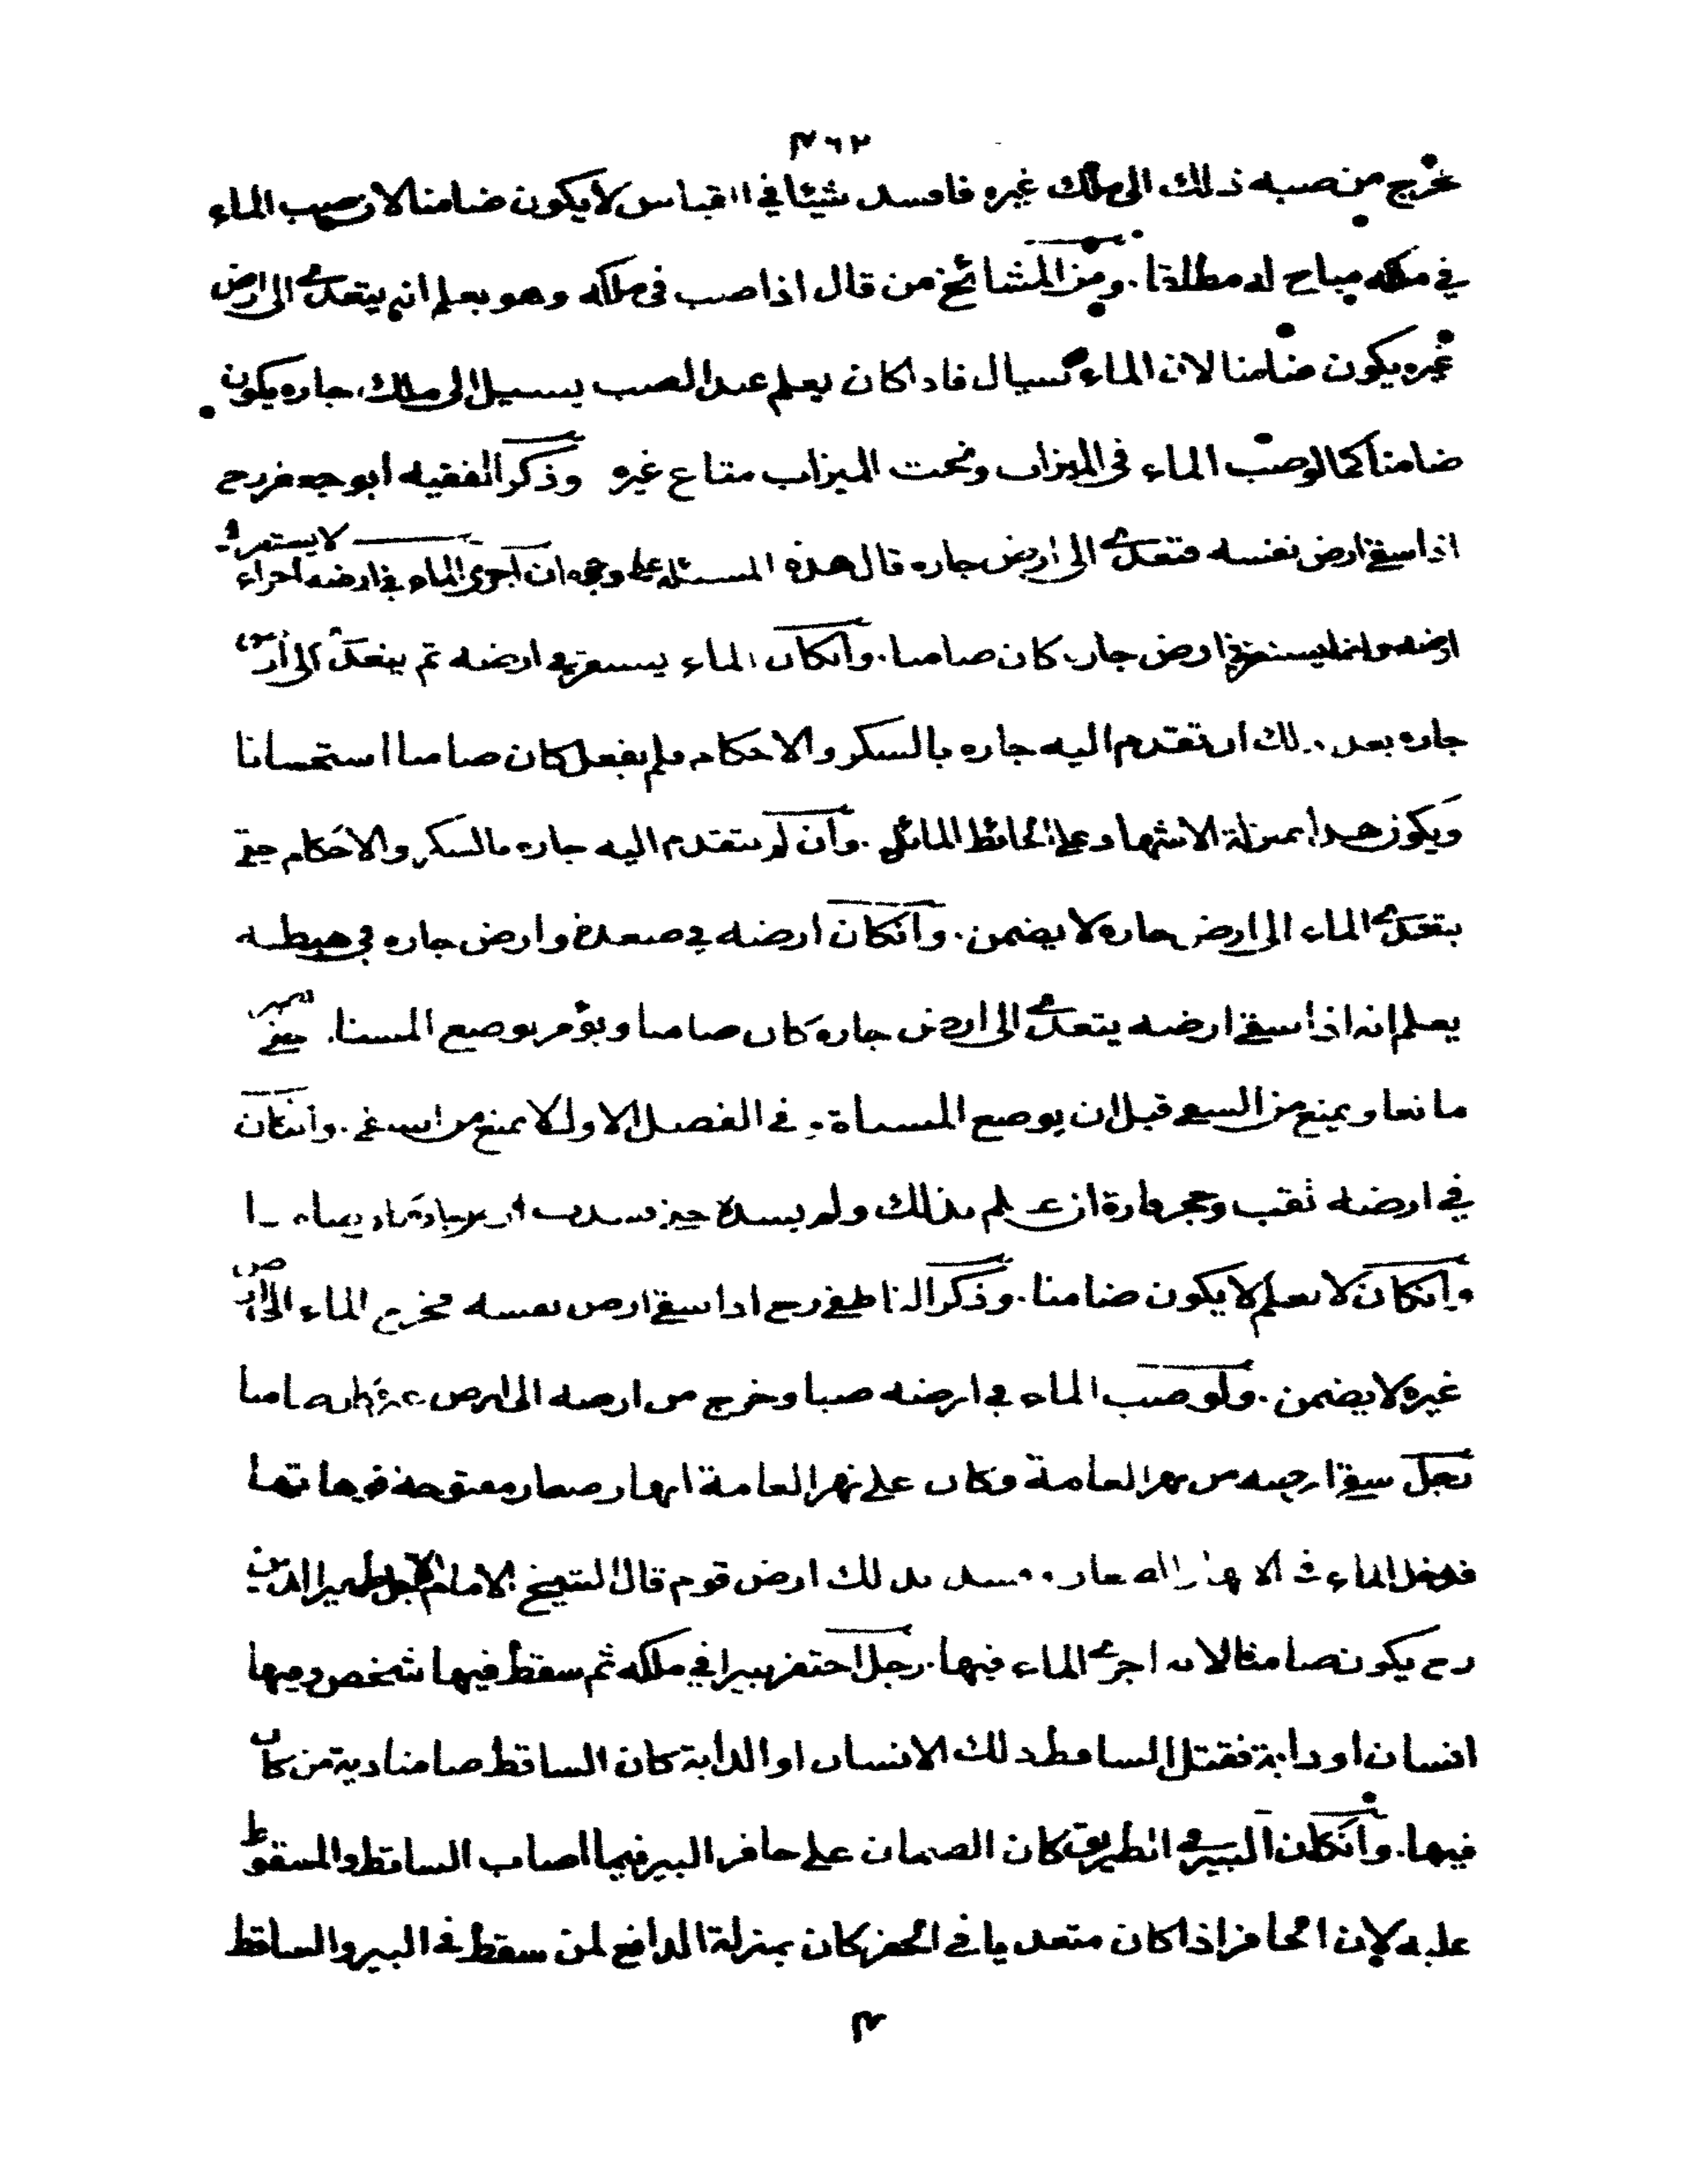 ٤٦٢
خرج من صبه ذلك الى ملك غيره فافسد شيئا في القياس لا يكون ضامنا لان صب الماء
في ملكه مباح له مطلقا. ومن المشائخ من قال اذا صب في ملكه وهو يعلم انه يتعدى الى ارض
غيره يكون ضامنا لان الماء سيال فاذا كان يعلم عند الصب يسيل الى ملك جاره يكون
ضامنا كما لو صب الماء في الميزاب وتحت الميزاب متاع غيره وذكر الفقيه ابو جعفر رح
اذا سقى ارض نفسه فتعدى الى ارض جاره قال هذه المسئلة على وجوه ان اجرى الماء في ارضه اجراء لا يستقر في
ارضه وانما يستقر في ارض جاره كان ضامنا. وانكان الماء يستقر في ارضه ثم يتعدى الى ارض
جاره بعد ذلك ان تقدم اليه جاره بالسكر والاحكام فلم يفعل كان ضامنا استحسانا
ويكون هذا بمنزلة الاشهاد على الحائط المائل. وان لم يتقدم اليه جاره بالسكر والاحكام حتى
يتعدى الماء الى ارض جاره لا يضمن. وانكان ارضه في صعدة وارض جاره في هبطه
يعلم انه اذا سقى ارضه يتعدى الى ارض جاره كان ضامنا ويؤمر بوضع المسناة حتى يصير
مانعا ويمنع من السقي قبل ان يوضع المسناة وفي الفصل الاول لا يمنع من السقي. وانكان
في ارضه ثقب وجحر فارة ان علم بذلك ولم يسده حتى فسدت ارض جاره كان ضامنا
وانكان لا يعلم لا يكون ضامنا. وذكر الناطفي رح اذا سقى ارض نفسه فخرج الماء الى ارض
غيره لا يضمن. ولو صب الماء في ارضه صبا وخرج من ارضه الى ارض غيره كان ضامنا
رجل سقى ارضه من نهر العامة وكان على نهر العامة انهار صغار مفتوحة فوهاتها
فدخل الماء في الانهار الصغار وفسد بذلك ارض قوم قال الشيخ الامام الاجل ظهير الدين
رح يكون ضامنا لانه اجرى الماء فيها. رجل احتفر بيرا في ملكه ثم سقط فيها شخص وفيها
انسان او دابة فقتل الساقط ذلك الانسان او الدابة كان الساقط ضامنا دية من كان
فيها. وانكان البير في الطريق كان الضمان على حافر البير فيما اصاب الساقط والمسقوط
عليه لان الحافر اذا كان متعديا في الحفر كان بمنزلة الدافع لمن سقط في البير والساقط